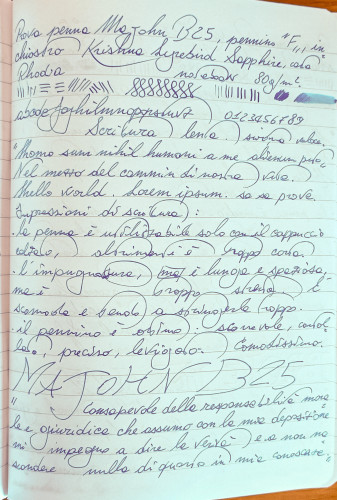 Prova penna Majohn B25, pennino "F", in
chiostro Krishna Lyrebird Sapphire, carta
Rhodia notebook 80g/m²
abcdefghilmnopqrstuvz 0123456789
Scrittura lenta, scrittura veloce.
"Homo sum nihil humani a me alienum puto"
Nel mezzo del cammin di nostra vita.
Hello world. Lorem ipsum. sa sa prova.
Impressioni di scrittura:
. la penna è utilizzabile solo con il cappuccio
calzato, altrimenti è troppo corta.
. l'impugnatura, è lunga e spaziosa,
ma è troppo strana è
scomoda e tendo a stringerla troppo.
. il pennino è ottimo: scorrevole, control
lato, preciso, levigato. Comodissimo.
MAJOHN B25
" Consapevole della responsabilità mora
le e giuridica che assumo con la mia deposizione
mi impegno a dire la verità e a non na
scondere nulla di quanto in mia conoscenza"